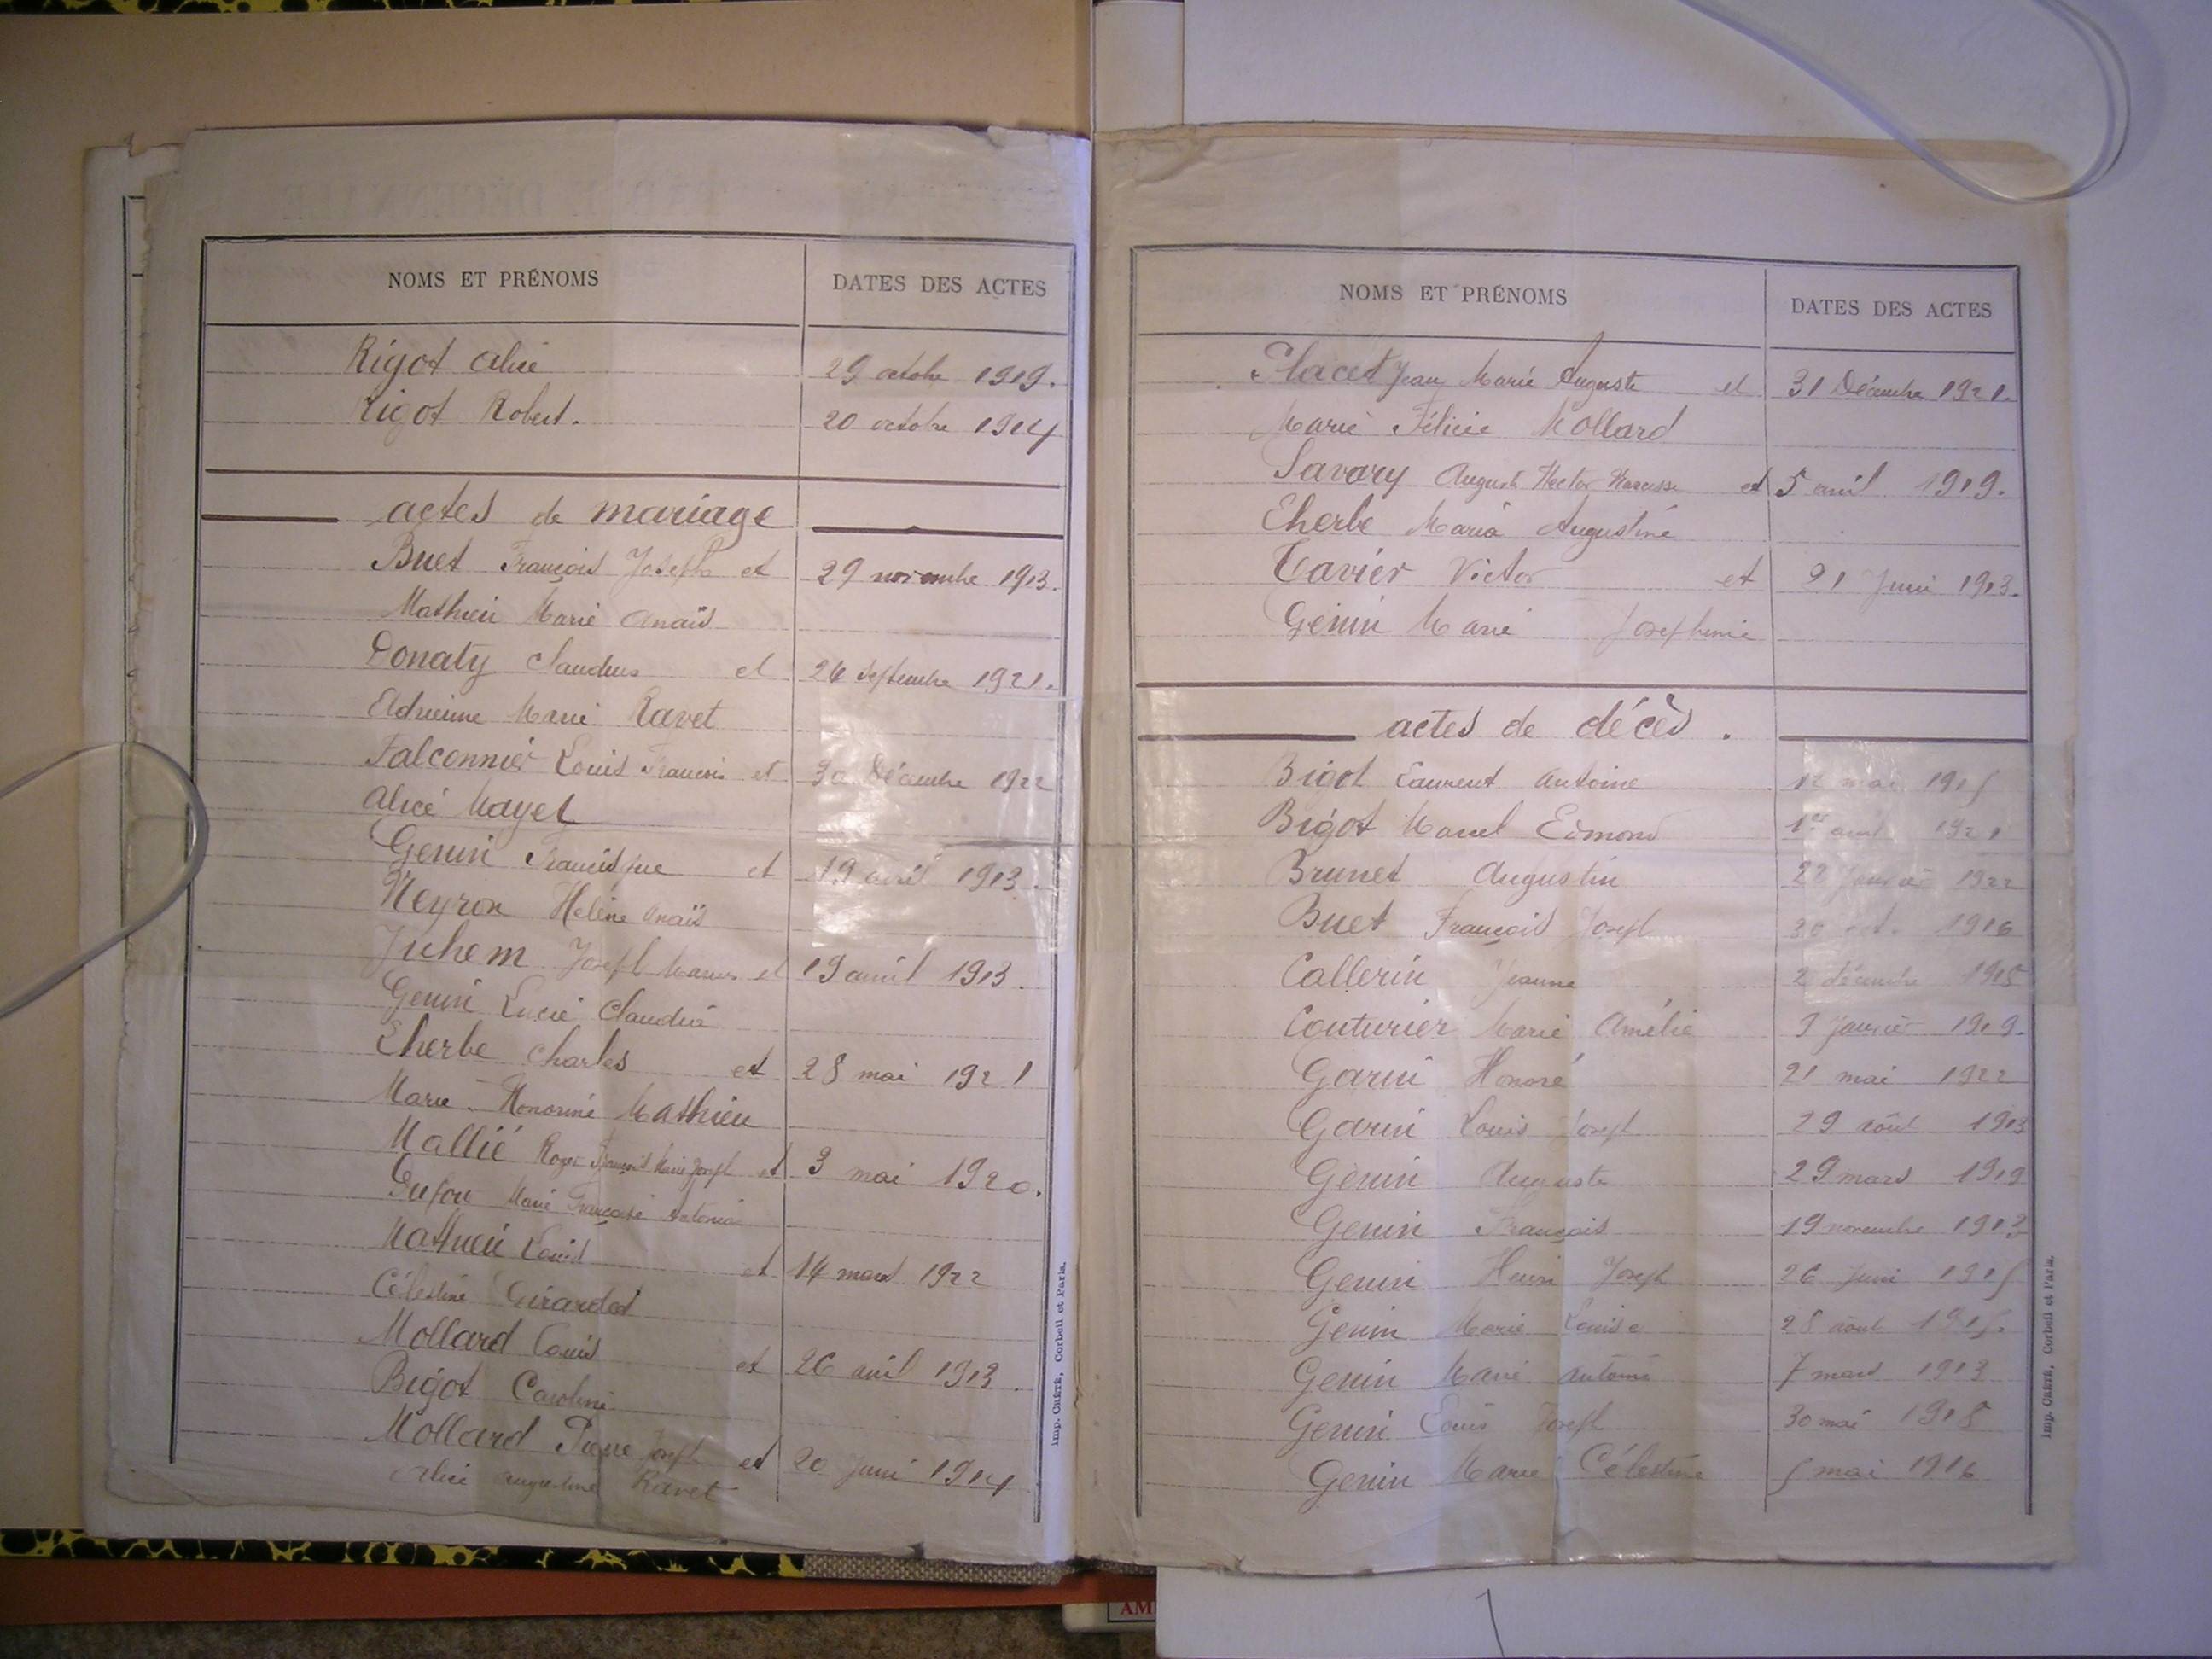 NOMS ET PRÉNOMS DATES DES ACTES
Rigot Alice 29 octobre 1919.
Rigot Robert. 20 octobre 1914
actes de mariage
Buet François Joseph et 29 novembre 1913.
Mathieu Marie Anaïs
Donaty Claudius et 26 septembre 1921.
Eldrienne Marie Ravet
Falconnier Louis François et 30 Décembre 1922
Alice Mayet
Genin Francisque et 19 avril 1913.
Neyron Hélène Anaïs
Juhem Joseph Marius et 19 avril 1913.
Genin Lucie Claudia
Eherbe Charles et 28 mai 1921
Marie Honorine Mathieu
Mallié Roger François Marie Joseph et 3 mai 1920.
Marie Françoise Antonia
Mathieu Louis et 14 mars 1922
Célestine Girardot
Mollard Louis et 26 avril 1913.
Bigot Caroline
Mollard Pierre Joseph et 20 Juin 1914
Alice Augustine Ravet
Imp. CRÉTÉ, Corbeil et Paris.
NOMS ET PRÉNOMS DATES DES ACTES
Placet Jean Marie Auguste et 31 Décembre 1921.
Marie Félicie Mollard
Savary Auguste Hector Narcisse et 5 avril 1919.
Eherbe Maria Augustine
Tavier Victor et 21 Juin 1913.
Genin Marie Josephine
actes de décès.
Bigot Laurent Antoine 12 mai 1915
Bigot Marcel Edmond 1er avril 1921
Brunet Augustin 22 Janvier 1922
Buet François Joseph 30 oct. 1916
Callerin Jeanne 2 décembre 1915
Couturier Marie Amélie 9 Janvier 1919.
Garin Honoré 21 mai 1922
Garin Louis Joseph 29 août 1913
Genin Auguste 29 mars 1919
Genin François 19 novembre 1913
Genin Henri Joseph 26 Juin 1915
Genin Marie Louise 28 août 1915.
Genin Marie Antoine 7 mars 1913
Genin Louis Joseph 30 mai 1918
Genin Marie Célestine 5 mai 1916
Imp. CRÉTÉ, Corbeil et Paris.
AM